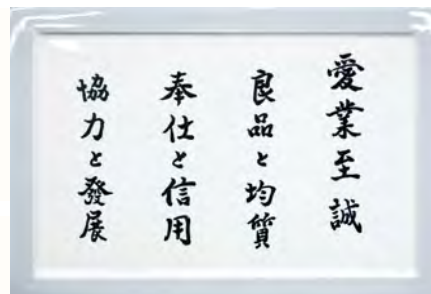 愛業至誠
良品と均質
奉仕と信用
協力と發展